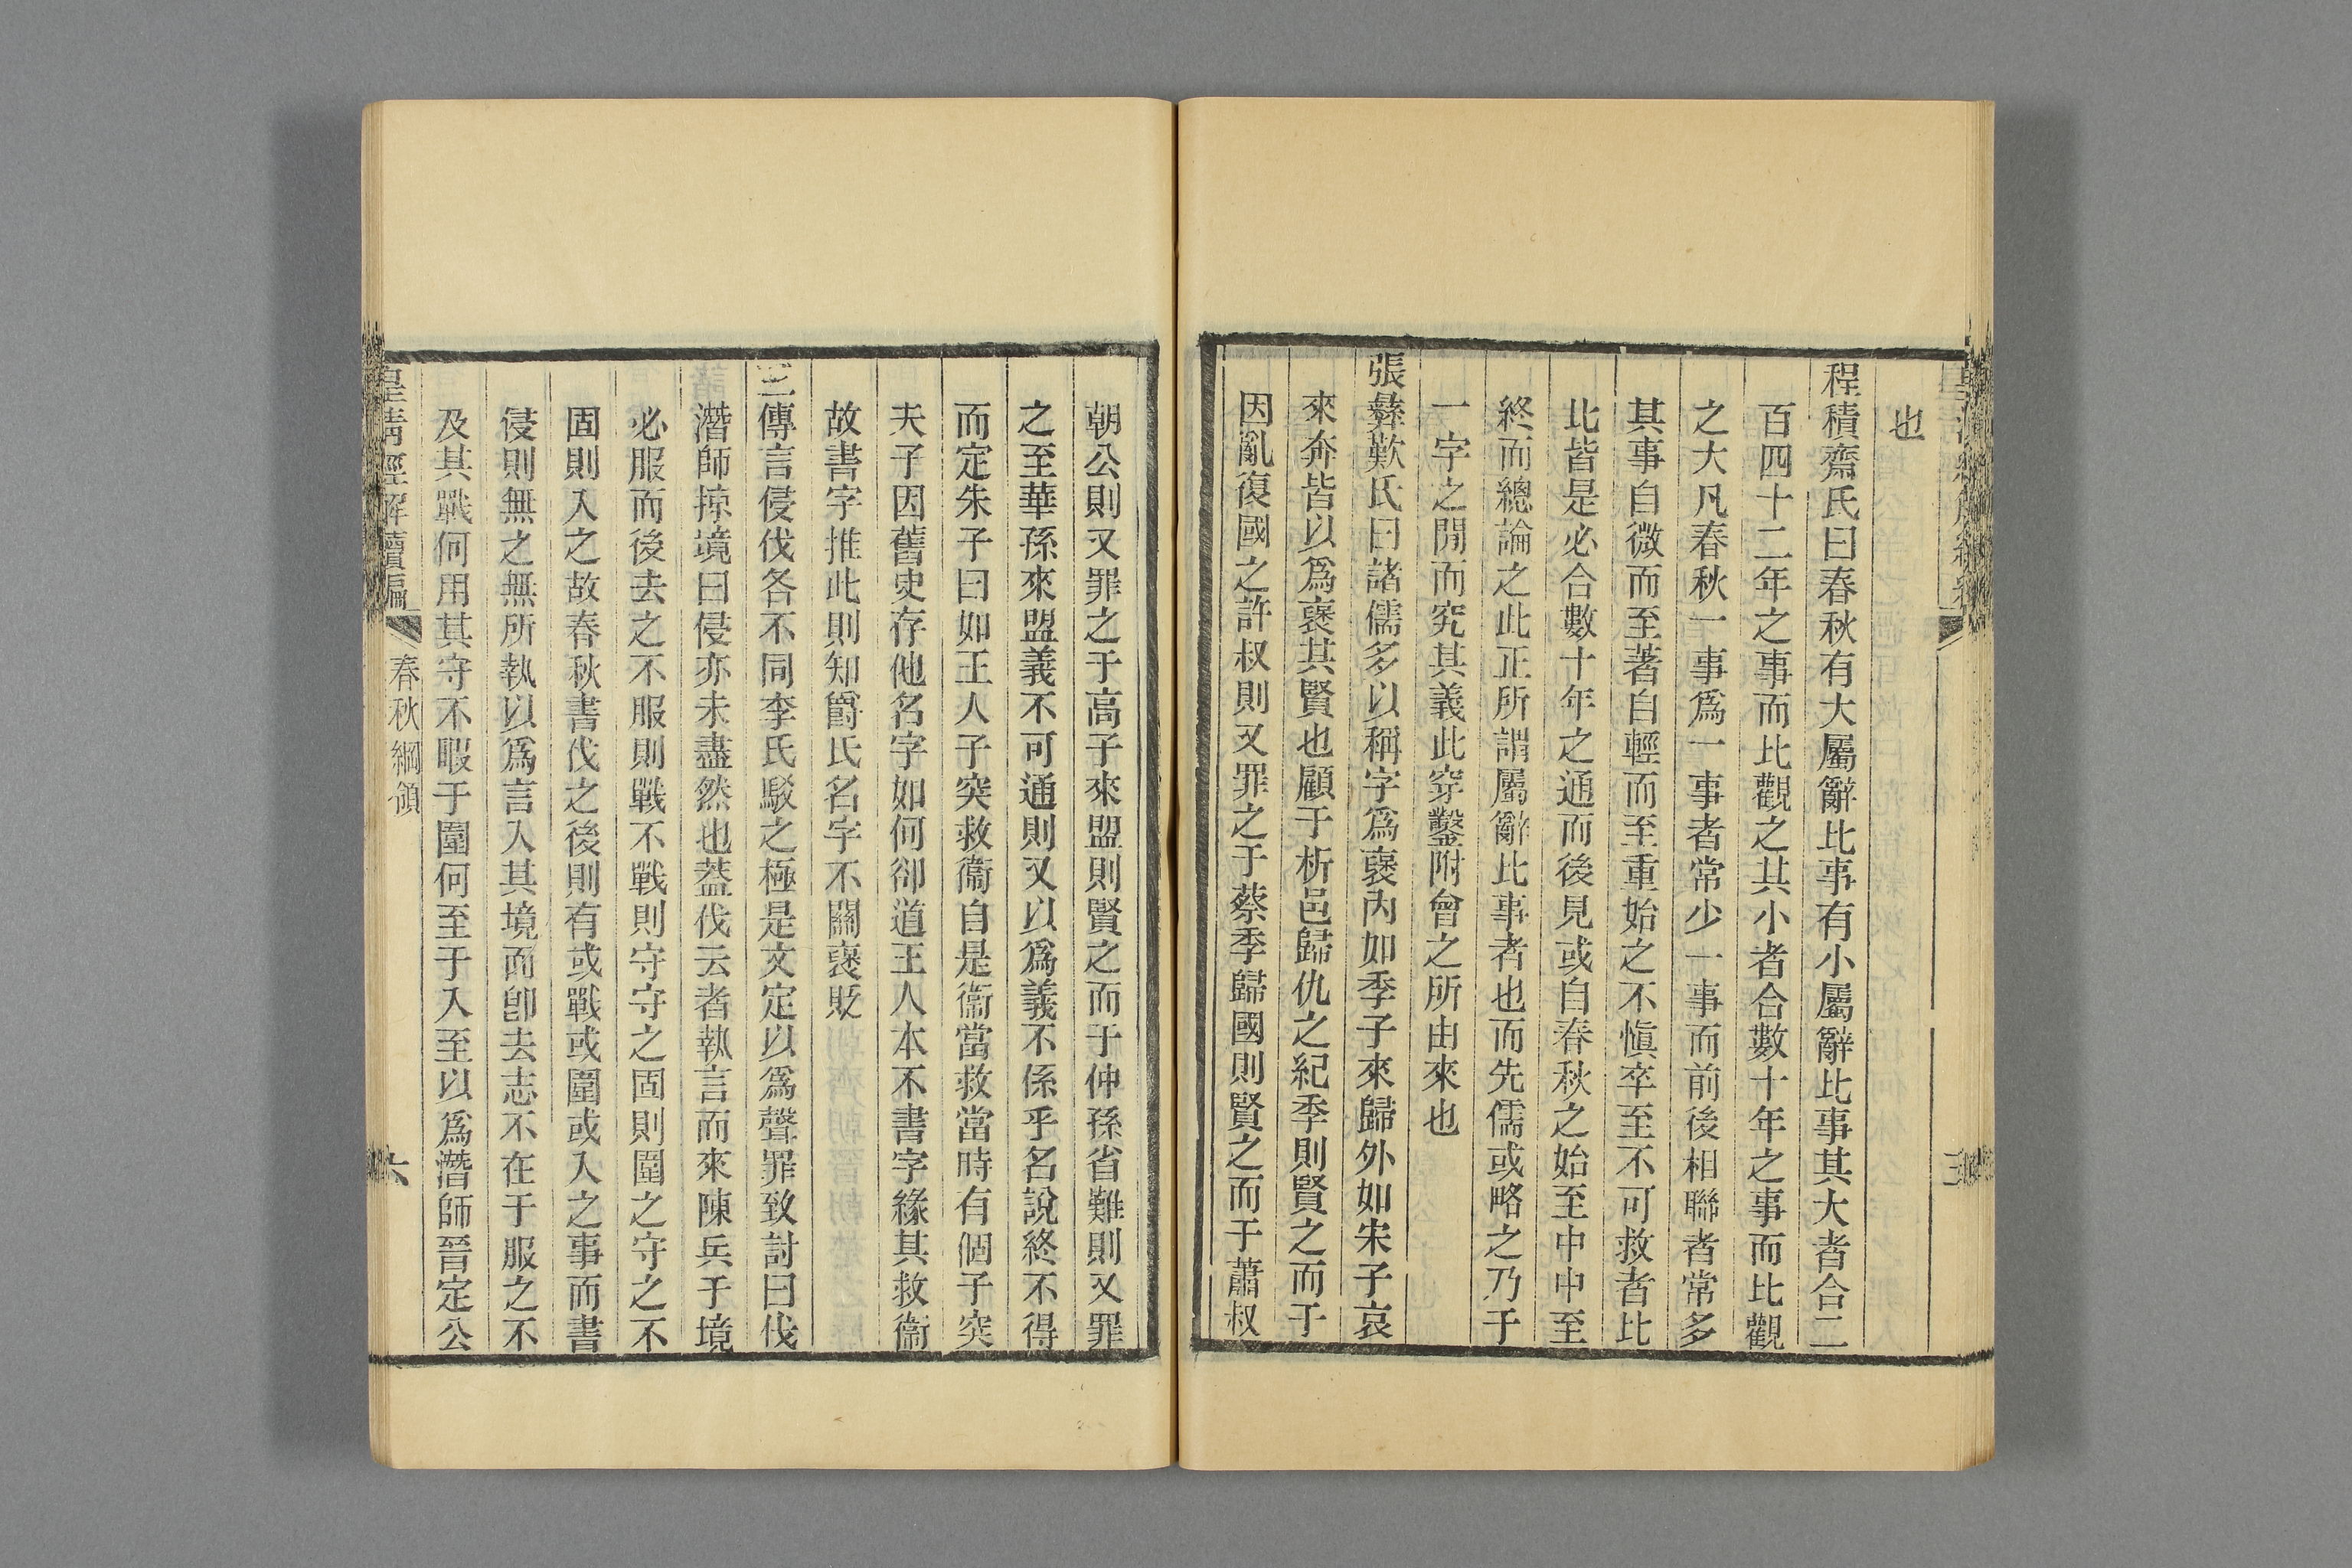 也
程積齋氏曰春秋有大屬辭比事有小屬辭比事其大者合二
百四十二年之事而比觀之其小者合數十年之事而比觀
之大凡春秋一事爲一事者常少一事而前後相聯者常多
其事自微而至著自輕而至重始之不愼卒至不可救者比
比皆是必合數十年之通而後見或自春秋之始至中中至
終而總論之此正所謂屬辭比事者也而先儒或略之乃于
一字之閒而究其義此穿鑿附會之所由來也
張彝歎氏曰諸儒多以稱字爲襃內如季子來歸外如宋子哀
來奔皆以爲襃其賢也顧于析邑歸仇之紀季則賢之而于
因亂復國之許叔則又罪之于蔡季歸國則賢之而于蕭叔
朝公則又罪之于高子來盟則賢之而于仲孫省難則又罪
之至華孫來盟義不可通則又以爲義不係乎名說終不得
而定朱子曰如王人子突救衞自是衞當救當時有個子突
夫子因舊史存他名字如何卻道王人本不書字緣其救衞
故書字推此則知爵氏名字不關襃貶
三傳言侵伐各不同李氏駁之極是文定以爲聲罪致討曰伐
潛師掠境曰侵亦未盡然也葢伐云者執言而來陳兵于境
必服而後去之不服則戰不戰則守守之固則圍之守之不
固則入之故春秋書伐之後則有或戰或圍或入之事而書
侵則無之無所執以爲言入其境而卽去志不在于服之不
及其戰何用其守不暇于圍何至于入至以爲潛師晉定公
皇淸經解續編
春秋綱領
六